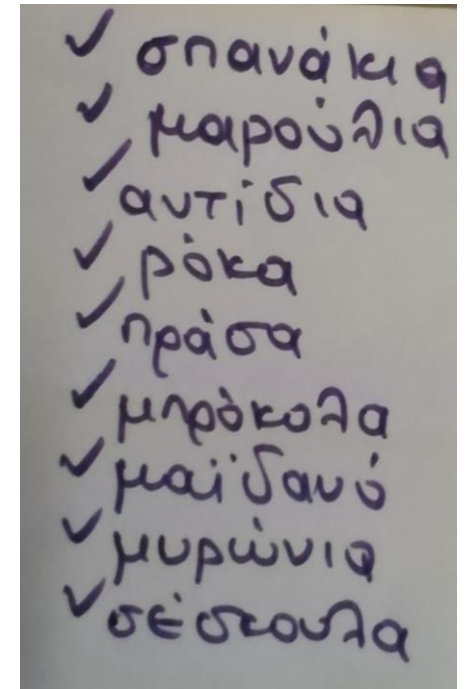 ✓ σπανάκια
✓ μαρούλια
✓ αντίδια
✓ ρόκα
✓ πράσα
✓ μπρόκολα
✓ μαϊδανό
✓ μυρώνια
✓ σέσκουλα